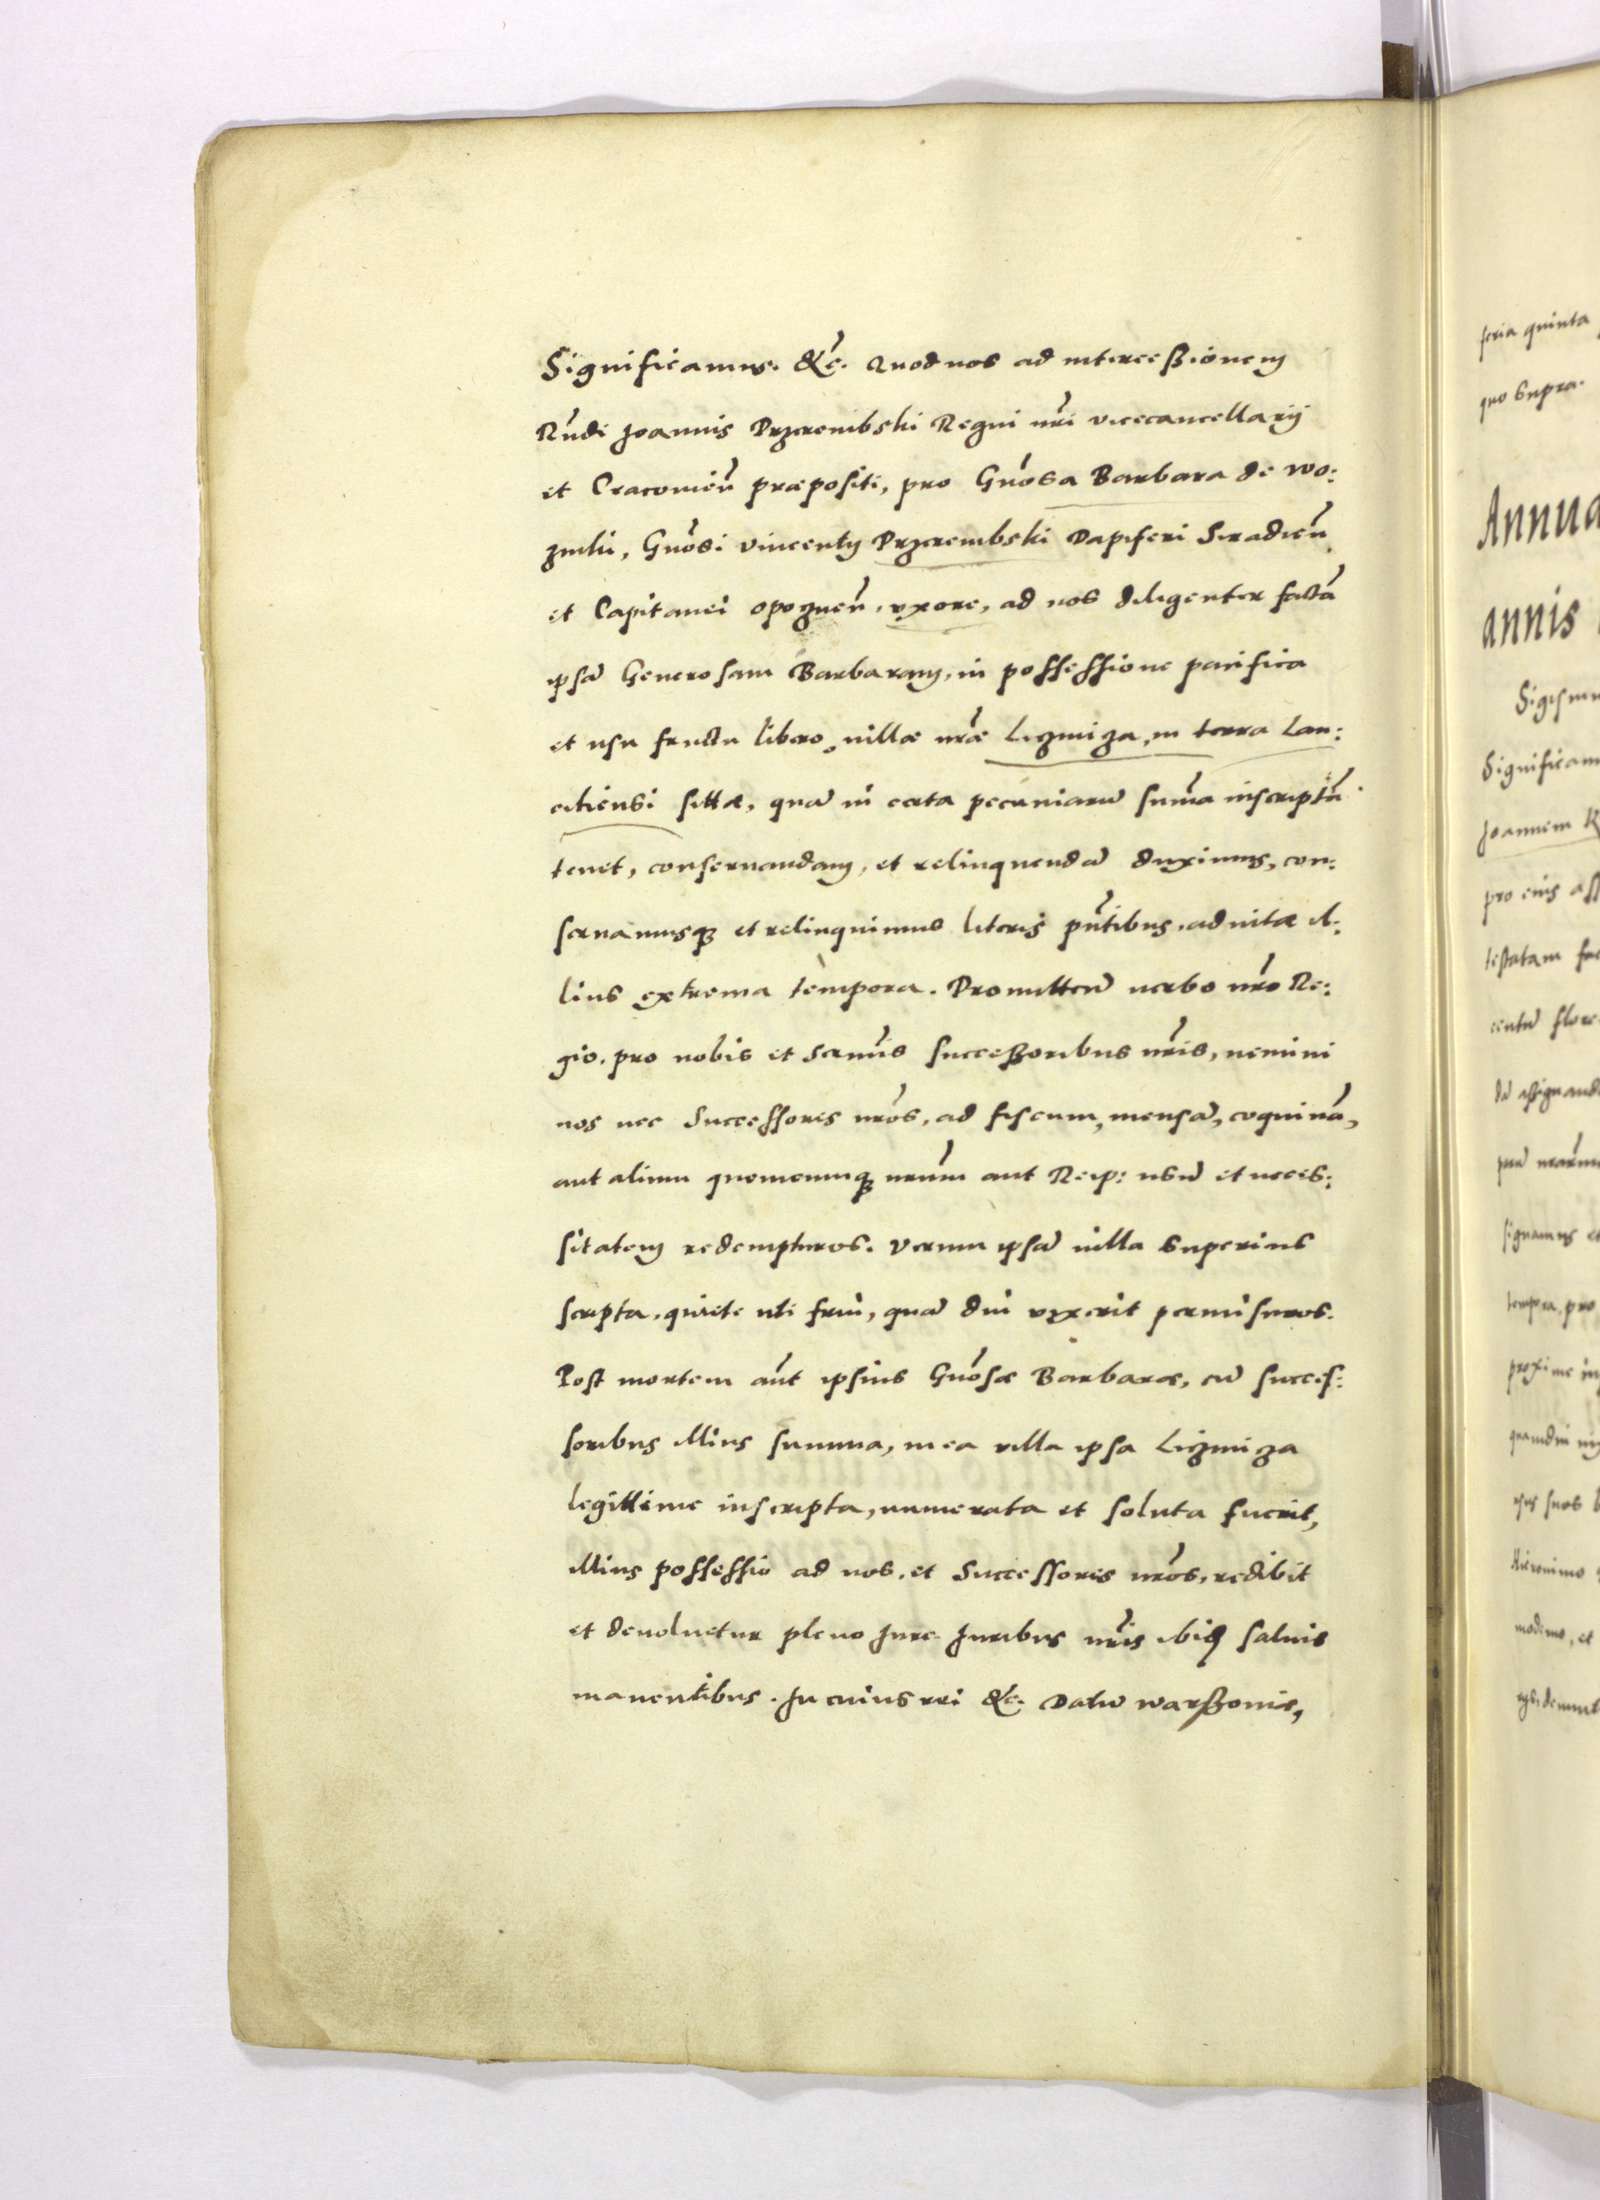 Significamus. &c̃. Quod nos ad intercessionem
Rñdi Joannis Przerembski Regni nr̃i vicecancellarij
et Cracovieñ præpositi, pro Gñosa Barbara de Wo:
znilii, Gñosi Vincentij Przerembski Dapiferi Siradieñ
et Capitanei opoznieñ, uxore, ad nos diligenter factã
ipsã Generosam Barbaram, in possessione pacifica
et usu fructu libero, villæ nr̃æ Lizmiza, in terra Lan:
ciciensi sittæ, quã in certa pecuniarũ sum̃a inscriptã
tenet, conservandam, et relinquendã duximus, con:
servamusq; et relinquimus literis pñtibus, ad vitæ il:
lius extrema tempora. Promittẽ verbo nr̃o Re:
gio, pro nobis et Serm̃is successoribus nr̃is, nemini
nos nec Successores nr̃os, ad fiscum, mensã, coquinã,
aut alium quemcunq; nr̃um aut Reip: usũ et neces:
sitatem redempturos. Verum ipsã villa superius
scripta, quiete uti frui, quã diu vixerit permisuros.
Post mortem aũt ipsius Gñosæ Barbaræ, cũ succes:
soribus illius summa, in ea villa ipsa Lizmiza
legittime inscripta, numerata et soluta fuerit,
illius possessio ad nos, et Successores nr̃os, redibit
et devoluetur pleno jure. Juribus nr̃is ibid salvis
manentibus. In cuius rei &c. Datũ Warssoviæ,
feria quinta
quo supra.
Annua
annis
Sigism
Significam
Joannem R
pro eius aff
testatam
centũ flore
dã assignand
signamus et
tempora, pro
proxime in
quamdiu
usus suos
Hieronimo
moderno, et